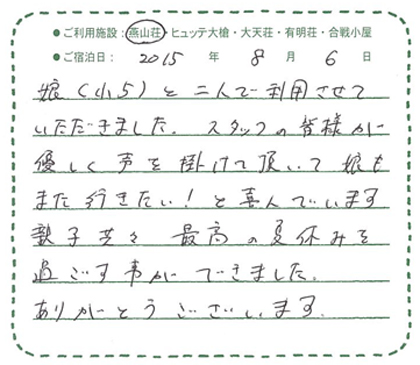 ●ご利用施設：燕山荘・ヒュッテ大槍・大天荘・有明荘・合戦小屋
●ご宿泊日：2015 年 8 月 6 日
娘（小5）と二人で利用させて
いただきました。スタッフの皆様が
優しく声を掛けて頂いて娘も
また行きたい！と喜んでいます
親子共々 最高の夏休みを
過ごす事ができました。
ありがとうございます。